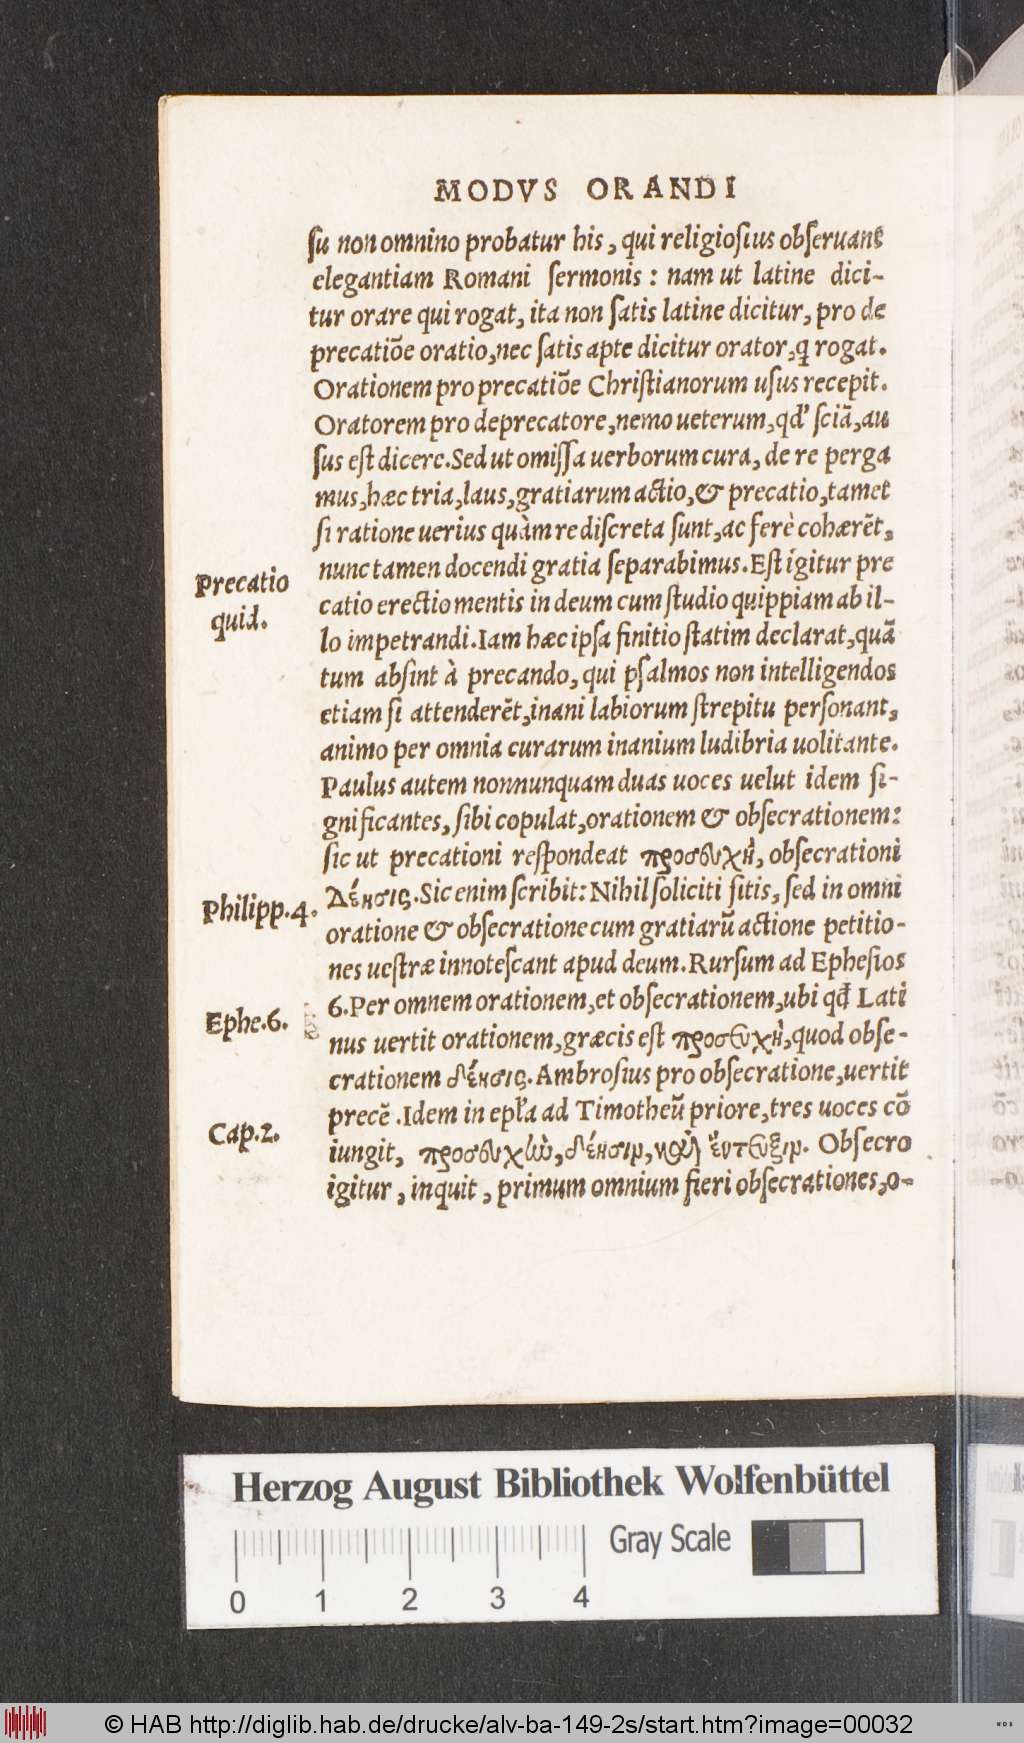 MODVS ORANDI
su non omnino probatur his, qui religiosius obseruant
elegantiam Romani sermonis: nam ut latine dici-
tur orare qui rogat, ita non satis latine dicitur, pro de
precatiõe oratio, nec satis apte dicitur orator, q̃ rogat.
Orationem pro precatiõe Christianorum usus recepit.
Oratorem pro deprecatore, nemo ueterum, qd' sciã, au
sus est dicere. Sed ut omissa uerborum cura, de re perga
mus, hæc tria, laus, gratiarum actio, & precatio, tamet
si ratione uerius quàm re discreta sunt, ac ferè cohærẽt,
nunc tamen docendi gratia separabimus. Est igitur pre
Precatio
catio erectio mentis in deum cum studio quippiam ab il-
quid.
lo impetrandi. Iam hæc ipsa finitio statim declarat, quã
tum absint à precando, qui psalmos non intelligendos
etiam si attenderẽt, inani labiorum strepitu personant,
animo per omnia curarum inanium ludibria uolitante.
Paulus autem nonnunquam duas uoces uelut idem si-
gnificantes, sibi copulat, orationem & obsecrationem:
sic ut precationi respondeat προσευχὴ, obsecrationi
Philipp.4.
Δέησις. Sic enim scribit: Nihil soliciti sitis, sed in omni
oratione & obsecratione cum gratiarũ actione petitio-
nes uestræ innotescant apud deum. Rursum ad Ephesios
Ephe.6.
6. Per omnem orationem, et obsecrationem, ubi qđ Lati
nus uertit orationem, græcis est προσευχὴ, quod obse-
crationem δέησις. Ambrosius pro obsecratione, uertit
precẽ. Idem in epl'a ad Timotheũ priore, tres uoces cõ
Cap.2.
iungit, προσευχὼ, δέησιν, καὶ ἔντευξιν. Obsecro
igitur, inquit, primum omnium fieri obsecrationes, o-
Herzog August Bibliothek Wolfenbüttel
Gray Scale
0 1 2 3 4
© HAB http://diglib.hab.de/drucke/alv-ba-149-2s/start.htm?image=00032